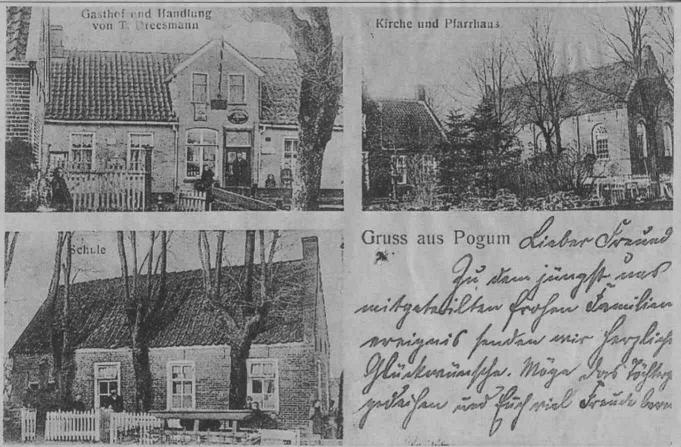 Gasthof und Handlung
von T. Dreesmann
Kirche und Pfarrhaus
Schule
Gruss aus Pogum Lieber Freund
Zu dem jüngst uns
mitgeteilten frohen Familien
ereignis senden wir herzliche
Glückwünsche. Möge das
gedeihen und Euch viel Freude